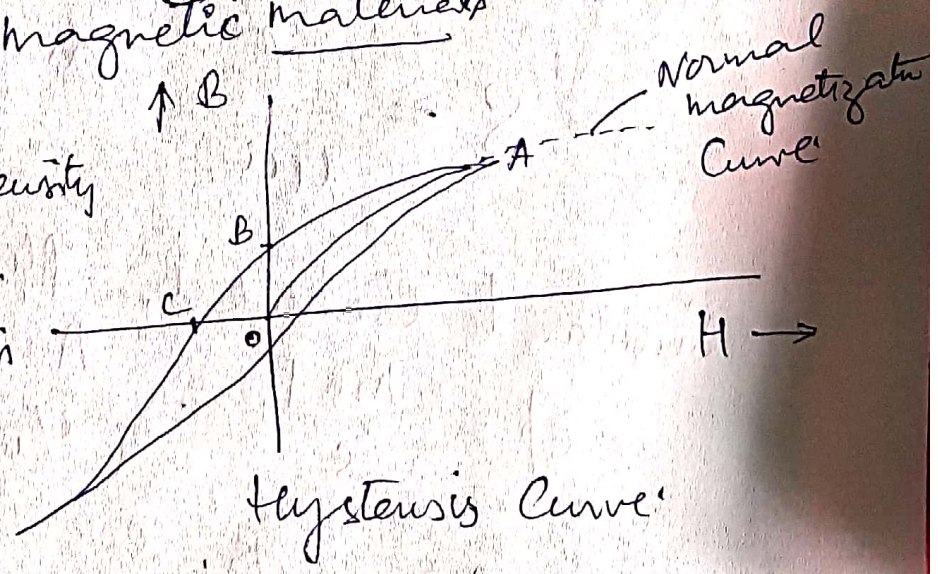 magnetic materials
↑ B
Normal
magnetizatn
Curve
A
B
C
O
H →
Hysteresis Curve